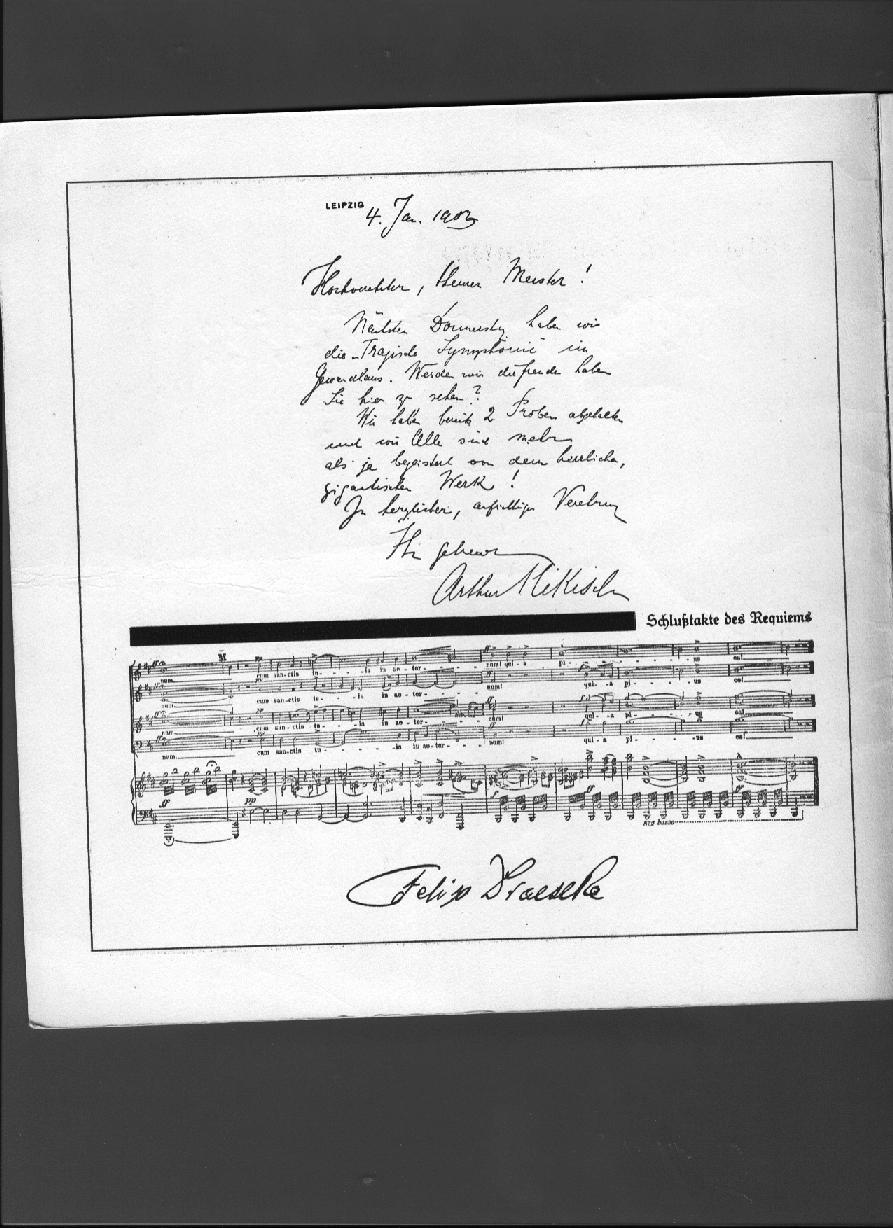 LEIPZIG 4. Jan. 190
Hochverehrter, theurer Meister!
Nächsten Donnerstag haben wir
die „Tragische Symphonie" im
Gewandhaus. Werden wir die Freude haben
Sie hier zu sehen?
Wir haben bereits 2 Proben abgehalten
und wir Alle sind mehr
als je begeistert von dem herrlichen,
gigantischen Werk!
In herzlicher, aufrichtiger Verehrung
Ihr getreuer
Arthur Nikisch
Schlußtakte des Requiems
cum sanctis tu - - - is in ae - ter - - - num! qui - a pi - - us es!
cum sanctis tu - - - is in ae - ter - - - num! qui - a pi - - us es!
cum sanctis tu - - - is in ae - ter - - - num! qui - a pi - - us es!
num cum sanctis tu - - - is in ae - ter - - - num! qui - a pi - - us es!
ff pp ff ff
Felix Draeseke